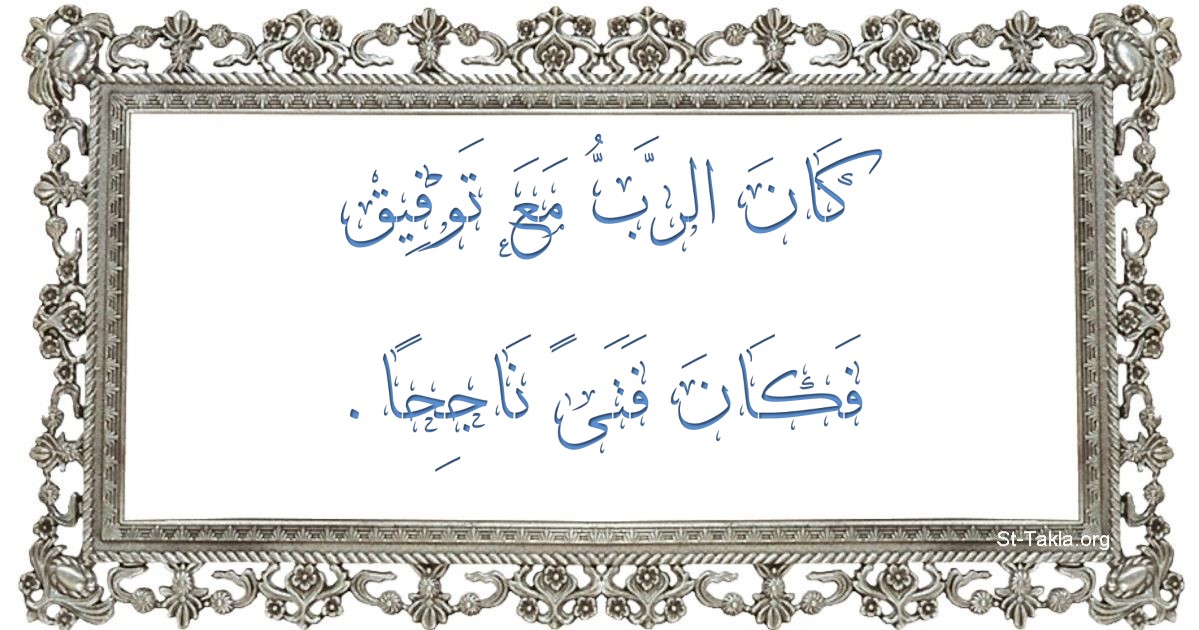 كَانَ الرَّبُّ مَعَ تَوْفِيق
فَكَانَ فَتَىً نَاجِحًا .
St-Takla.org